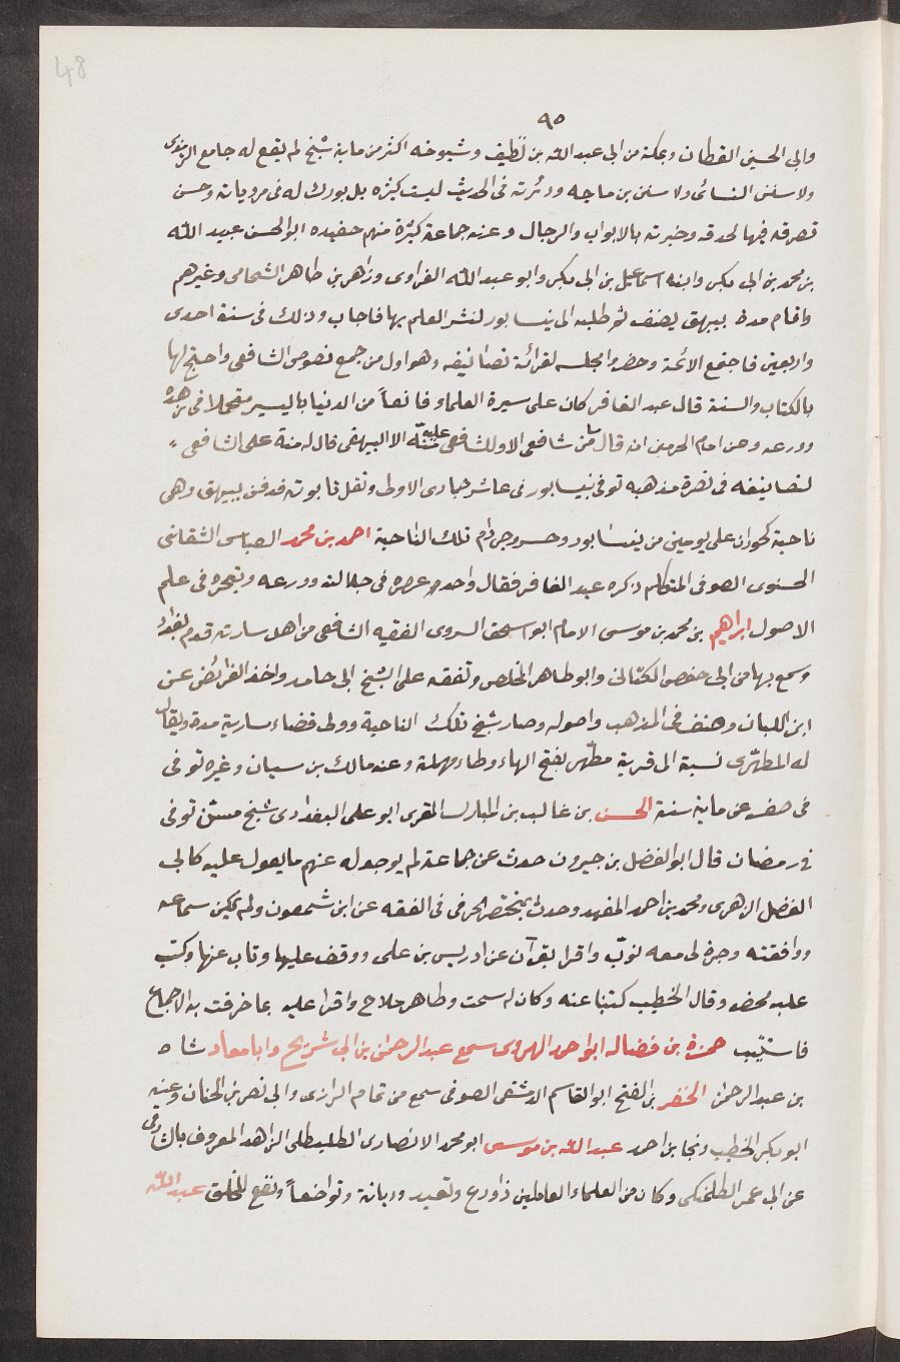 48
٩٥
وابى الحسين القطان وبمكة من ابى عبد الله بن نظيف وشيوخه اكثر من ماية شيخ لم يقع له جامع الترمذى
ولا سنن النسائى ولا سنن بن ماجه ودئرته فى الحديث ليست كبيره بل بورك له فى مروياته وحسن
تصرفه فيها لحدقه وخبرته بالابواب والرجال وعنه جماعة كثيرة منهم حفيده ابو الحسن عبيد الله
بن محمد بن ابى بكر وابنه اسماعيل بن ابى بكر وابو عبد الله الفراوى وزاهر بن طاهر الشحامى وغيرهم
واقام مدة ببيهق يصنف ثم طلبه الى نيسابور لنشر العلم بها فاجاب وذلك فى سنة احدى
واربعين فاجتمع الائمة وحضروا مجلسه لقرائة تصانيفه وهو اول من جمع نصوص الشافعى واحتج لها
بالكتاب والسنة قال عبد الغافر كان على سيرة العلماء قانعاً من الدنيا باليسير متجملا فى زهده
وورعه وعن امام الحرمين انه قال ما من شافعى الا وللشافعى عليه منّة الا البيهقى فان له منة على الشافعى
لتصانيفه فى نصرة مذهبه توفى بنيسابور فى عاشر جمادى الاولى ونقل تابوته فدفن ببيهق وهى
ناحية كحوران على يومين من نيسابور وخسروجرد ام تلك الناحية احمد بن محمد العباس الشقانى
الحسنوى الصوفى المتكلم ذكره عبد الغافر فقال واحد عصره فى جلالته وورعه وتبحره فى علم
الاصول ابراهيم بن محمد بن موسى الامام ابو اسحق السروى الفقيه الشافعى من اهل سارية قدم بغداد
وسمع بها من ابى حفص الكتانى وابو طاهر المخلص وتفقه على الشيخ ابى حامد واخذ الفرائض عن
ابن اللبان وصنف فى المذهب واصوله وصار شيخ تلك الناحية وولى قضاء سارية مدة ويقال
له المطهّرى نسبة الى قرية مطهّر بفتح الهاء وطاء مهملة وعنه مالك بن سيان وغيره توفى
فى صفر عن ماية سنة الحسن بن غالب بن المبارك المقرى ابو على البغدادى شيخ مسن توفى
فى رمضان قال ابو الفضل بن خيرون حدث عن جماعة لم يوجد له عنهم ما يعول عليه كابى
الفضل الزهرى ومحمد بن احمد المفيد وحدث بمختصر الخرقى فى الفقه عن ابن شمعون ولم يكن سماعه
ووافقته وجرى لى معه نوب واقرا بقرآن عن ادريس بن على ووقف عليها وتاب عنها وكتب
عليه محضر وقال الخطيب كتبنا عنه وكان له سمت وظاهر صلاح واقرا عليه بما خرقت به الاجماع
فاستتيب حمزة بن فضاله ابو احمد الهروى سمع عبد الرحمن بن ابى شريح وابا معاد شاه
بن عبد الرحمن الخضر بن الفتح ابو القاسم الدمشقى الصوفى سمع من تمام الرازى وابى نصر بن الجنان وعنه
ابو بكر الخطيب ونجا بن احمد عبد الله بن موسى ابو محمد الانصارى الطليطلى الزاهد المعروف بالشارقى
عن ابى عمر الطلمنكى وكان من العلماء العاملين ذا ورع وتعبد وديانة وتواضعاً ونفع للخلق عبد الله